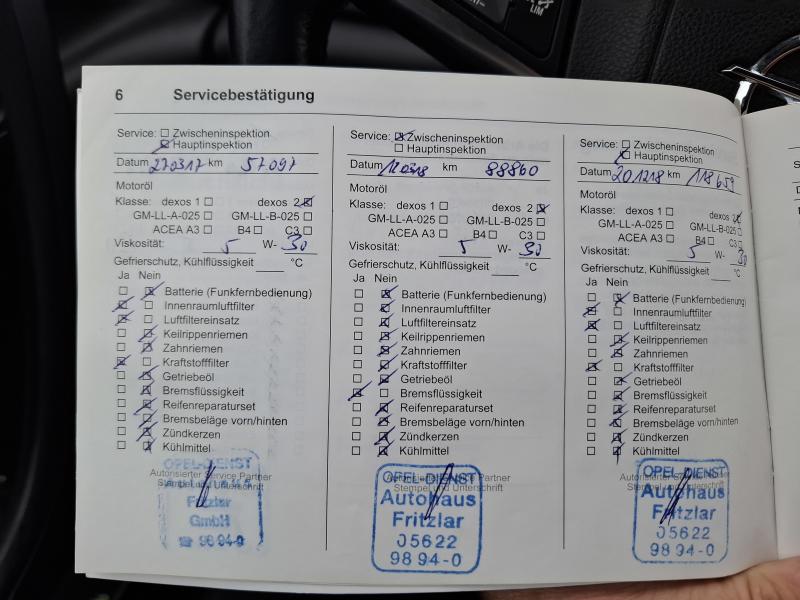 LIM
6 Servicebestätigung
Service: Zwischeninspektion
Hauptinspektion
Datum 270317 km 57097
Motoröl
Klasse: dexos 1 dexos 2
GM-LL-A-025 GM-LL-B-025
ACEA A3 B4 C3
Viskosität: 5 W- 30
Gefrierschutz, Kühlflüssigkeit °C
Ja Nein
Batterie (Funkfernbedienung)
Innenraumluftfilter
Luftfiltereinsatz
Keilrippenriemen
Zahnriemen
Kraftstofffilter
Getriebeöl
Bremsflüssigkeit
Reifenreparaturset
Bremsbeläge vorn/hinten
Zündkerzen
Kühlmittel
OPEL-DIENST
Autorisierter Service Partner
Stempel und Unterschrift
Fritzlar
GmbH
☎ 98 94-0
Service: Zwischeninspektion
Hauptinspektion
Datum 120318 km 88860
Motoröl
Klasse: dexos 1 dexos 2
GM-LL-A-025 GM-LL-B-025
ACEA A3 B4 C3
Viskosität: 5 W- 30
Gefrierschutz, Kühlflüssigkeit °C
Ja Nein
Batterie (Funkfernbedienung)
Innenraumluftfilter
Luftfiltereinsatz
Keilrippenriemen
Zahnriemen
Kraftstofffilter
Getriebeöl
Bremsflüssigkeit
Reifenreparaturset
Bremsbeläge vorn/hinten
Zündkerzen
Kühlmittel
OPEL-DIENST
Partner
Stempel und Unterschrift
Autohaus
Fritzlar
05622
98 94-0
Service: Zwischeninspektion
Hauptinspektion
Datum 201218 km 118659
Motoröl
Klasse: dexos 1 dexos 2
GM-LL-A-025 GM-LL-B-025
ACEA A3 B4 C3
Viskosität: 5 W- 30
Gefrierschutz, Kühlflüssigkeit °C
Ja Nein
Batterie (Funkfernbedienung)
Innenraumluftfilter
Luftfiltereinsatz
Keilrippenriemen
Zahnriemen
Kraftstofffilter
Getriebeöl
Bremsflüssigkeit
Reifenreparaturset
Bremsbeläge vorn/hinten
Zündkerzen
Kühlmittel
OPEL-DIENST
Autohaus
Fritzlar
05622
98 94-0